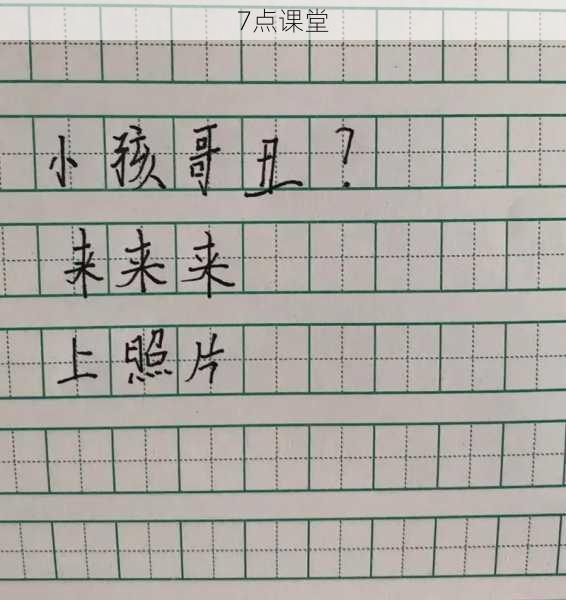 7点课堂
小孩哥丑？
来来来
上照片